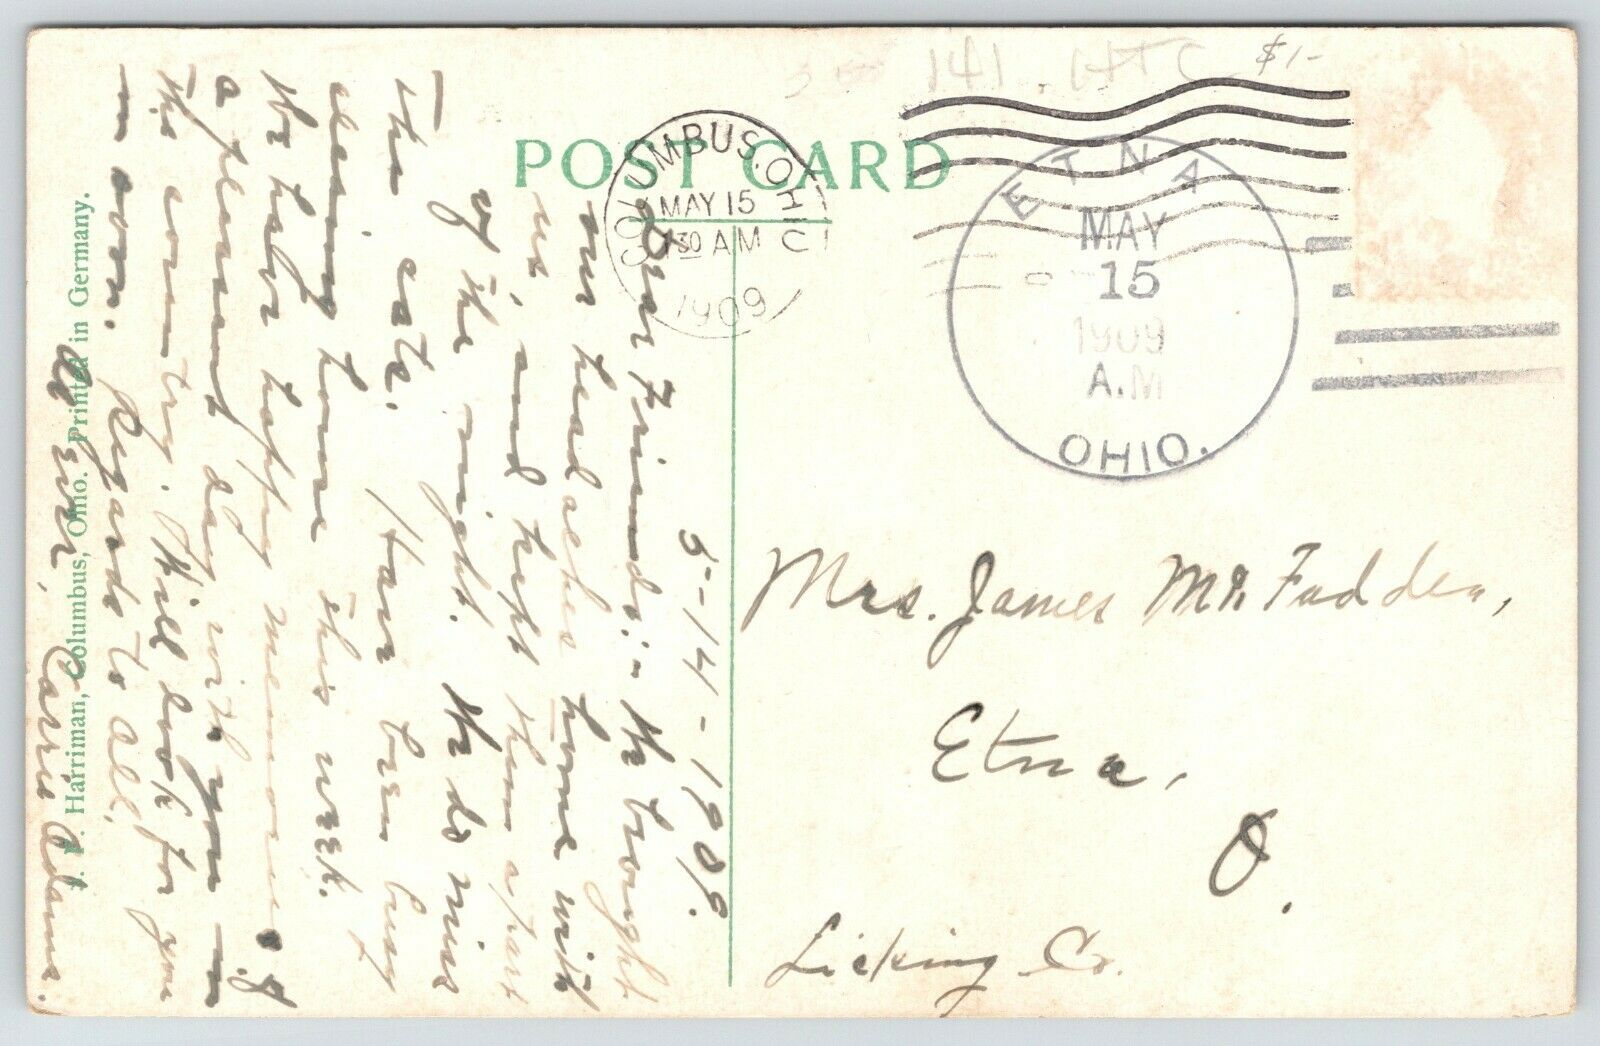 $1-
141 HTC
POST CARD
COLUMBUS, OHIO
MAY 15
30 AM
1909
ETNA
MAY
15
1909
A.M
OHIO.
5-14-1909.
Dear Friends:- We brought
our headaches home with
us, and kept them a part
of the night. We do miss
the eats. Have been busy
cleaning home this week.
We have happy memories of
a pleasant day with you in
the country. Will look for you
in soon. Regards to all.
As ever,
Carrie Adams.
Mrs. James McFadden,
Etna,
O.
Licking Co.
J. P. Harriman, Columbus, Ohio. Printed in Germany.